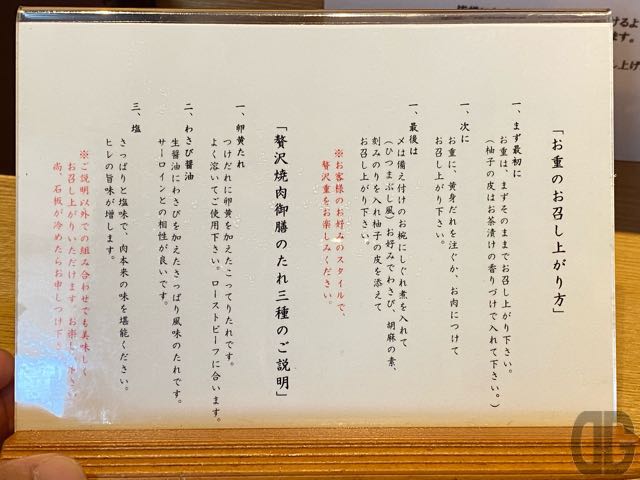 「お重のお召し上がり方」
一、まず最初に
お重は、まずそのままでお召し上がり下さい。
（柚子の皮はお茶漬けの香りづけで入れて下さい。）
一、次に
お重に、黄身だれを注ぐか、お肉につけて
お召し上がり下さい。
一、最後は
〆は備え付けのお椀にしぐれ煮を入れて
（ひつまぶし風）お好みでわさび、胡麻の素、
刻みのりを入れ柚子の皮を添えて
お召し上がり下さい。
※お客様のお好みのスタイルで、
贅沢重をお楽しみください。
「贅沢焼肉御膳のたれ三種のご説明」
一、卵黄たれ
つけだれに卵黄を加えたこってりたれです。
よく溶いてご使用下さい。ローストビーフに合います。
二、わさび醤油
生醤油にわさびを加えたさっぱり風味のたれです。
サーロインとの相性が良いです。
三、塩
さっぱりと塩味で、肉本来の味を堪能ください。
ヒレの旨味が増します。
※ご説明以外での組み合わせでも美味しく
お召し上がりいただけます。お楽しみ下さい。
尚、石板が冷めたらお申しつけ下さ
けるよ
ます。
し上げ
DG